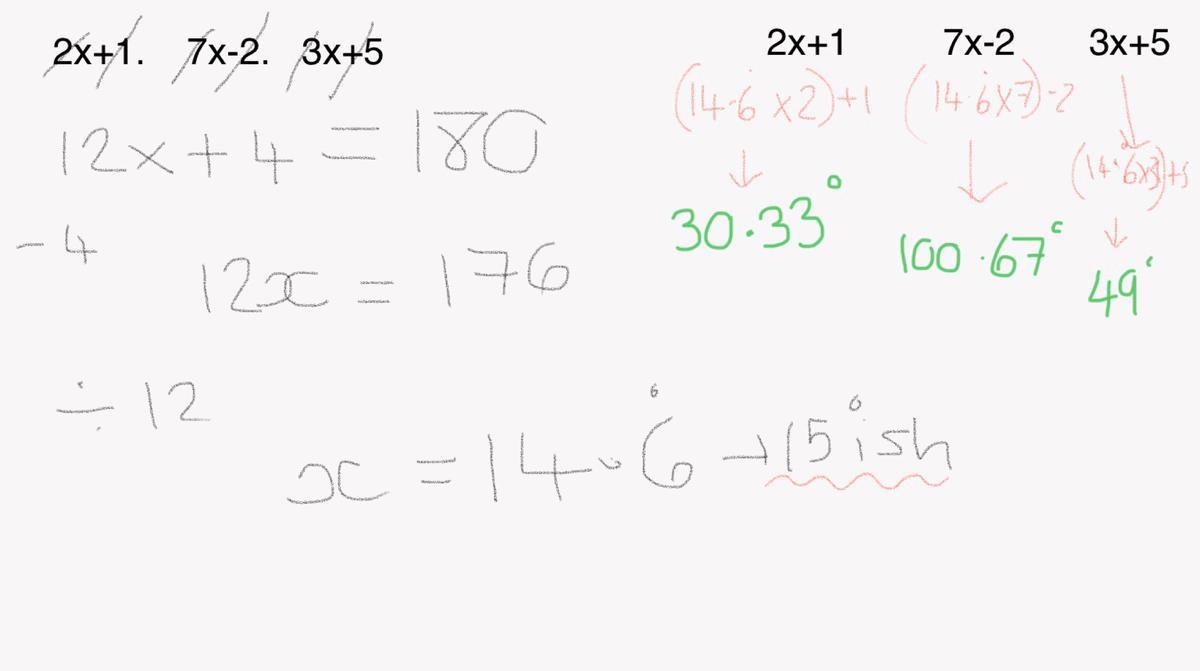 2x+1. 7x-2. 3x+5
12x + 4 = 180
- 4
12x = 176
÷ 12
x = 14.6̇ → 15°ish
2x+1 7x-2 3x+5
(14.6̇ x2)+1 (14.6̇x7)-2
(14.6̇x3)+5
30.33°
100.67°
49°